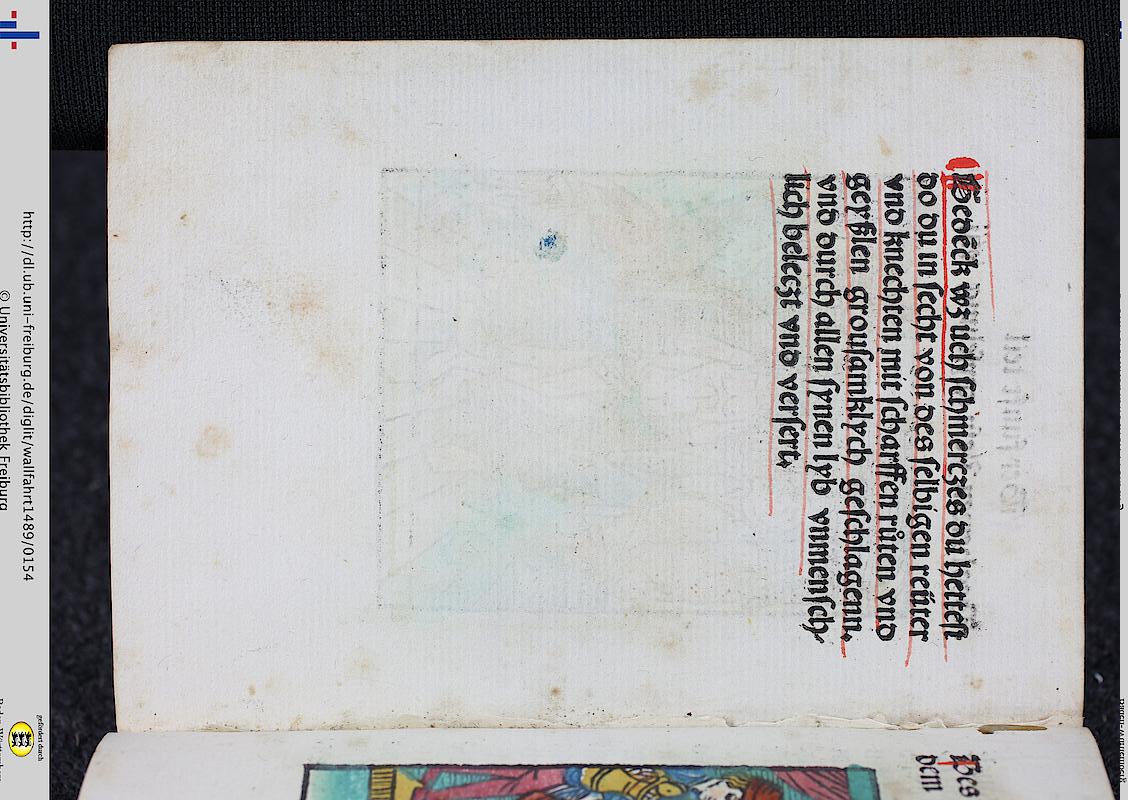 ¶ Bedẽck wʒ uch ſchmerczes du hetteſt
do du in ſecht von des ſelbigen reüter
vnd knechten mit ſcharffen růten vnd
geyßlen grouſamklych geſchlagenn,
vnd durch allen ſynen lyb vnmenſch,
lich beleczt vnd verſert.
Bes
dem
http://dl.ub.uni-freiburg.de/diglit/wallfahrt1489/0154
© Universitätsbibliothek Freiburg
gefördert durch